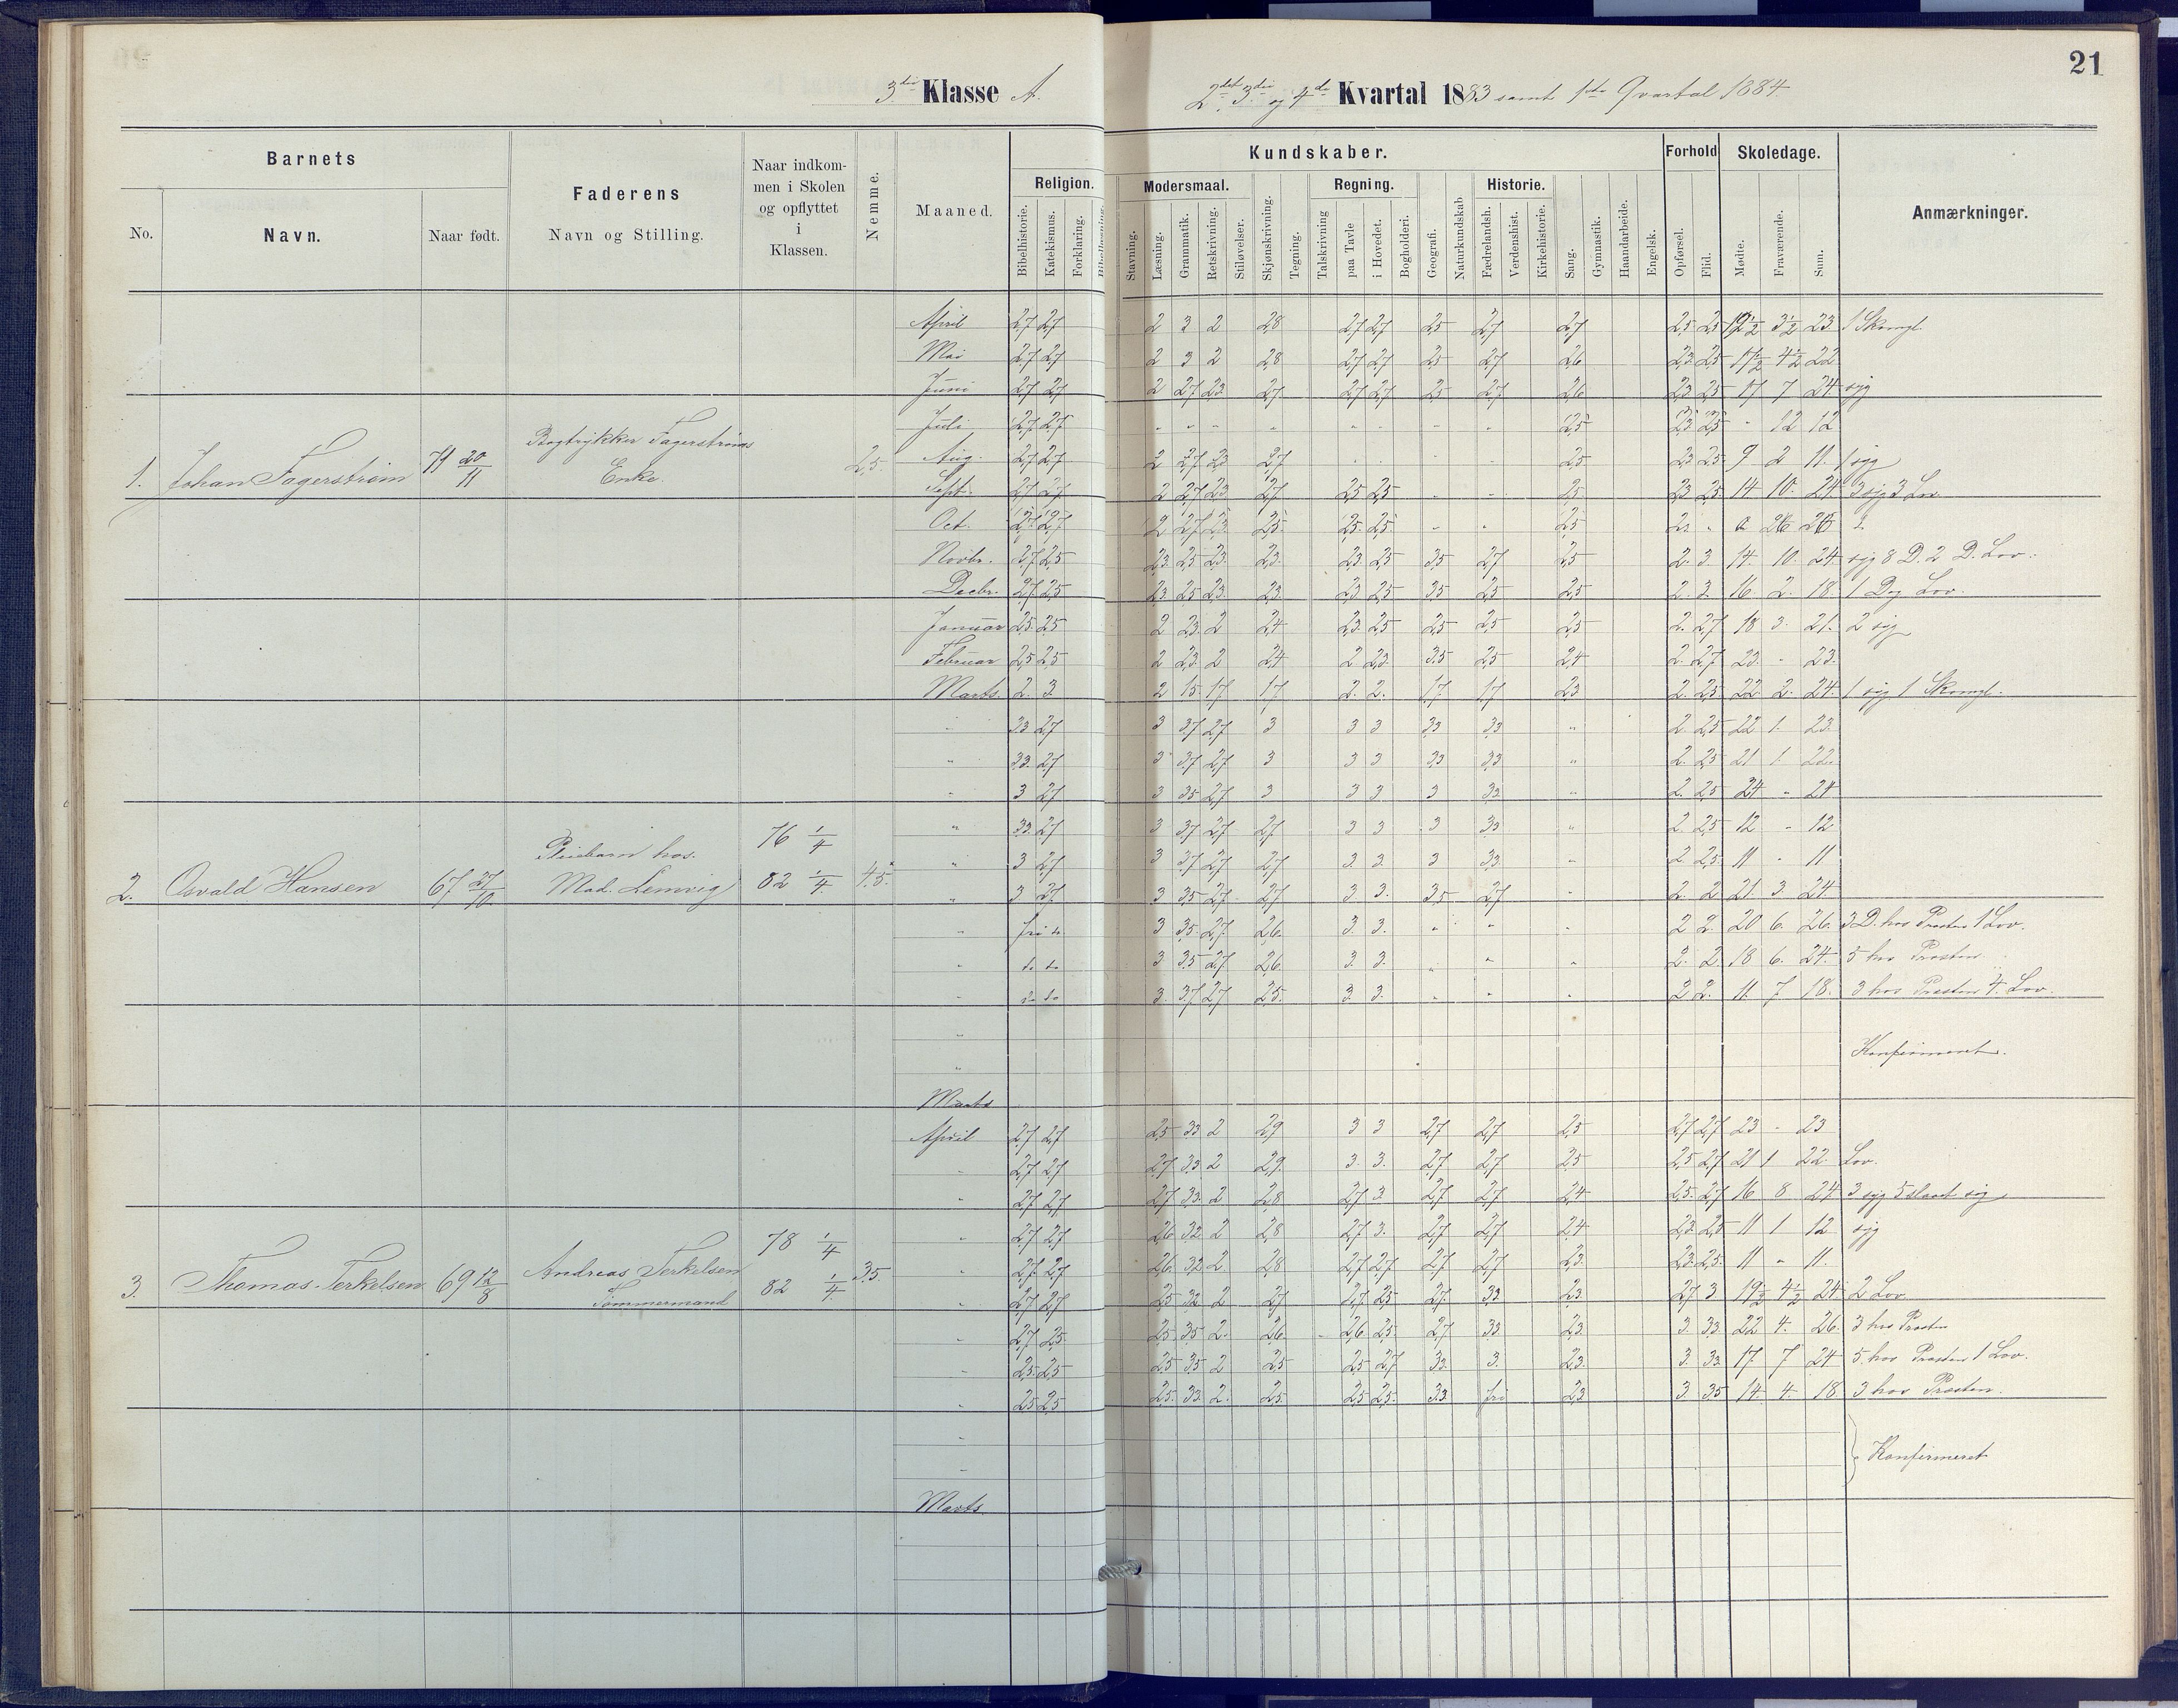 21
3die Klasse A.
2det 3die og 4de Kvartal 1883 samt 1ste Qvartal 1884
Barnets
No.
Navn.
Naar født.
Faderens
Navn og Stilling.
Naar indkom-
men i Skolen
og opflyttet
i
Klassen.
Nemme.
Maaned.
Kundskaber.
Religion.
Bibelhistorie.
Katekismus.
Forklaring.
Bibellæsning.
Modersmaal.
Stavning.
Læsning.
Grammatik.
Retskrivning.
Stiløvelser.
Skjønskrivning.
Tegning.
Regning.
Talskrivning
paa Tavle
i Hovedet.
Bogholderi.
Geografi.
Naturkundskab
Historie.
Fædrelandsh.
Verdenshist.
Kirkehistorie.
Sang.
Gymnastik.
Haandarbeide.
Engelsk.
Forhold
Opførsel.
Flid.
Skoledage.
Mødte.
Fraværende.
Sum.
Anmærkninger.
1. Johan Fagerstrøm 71 20/11 Bogtrykker Fagerstrøms Enke. 2,5.
April 2,7 2,7 2 3 2 2,8 2,7 2,7 2,5 2,7 2,7 2,5 2,5 19½ 3½ 23
Mai 2,7 2,7 2 3 2 2,8 2,7 2,7 2,5 2,7 2,6 2,3 2,5 17½ 4½ 22
Juni 2,7 2,7 2 2,7 2,3 2,7 2,7 2,7 2,5 2,7 2,6 2,3 2,5 17 7 24 syg
Juli 2,7 2,7 " " " " " " " " 2,5 2,3 2,5 " 12 12
Aug. 2,7 2,7 2 2,7 2,3 2,7 2,5 2,3 2,5 9 2 11 1 syg
Sept. 2,7 2,7 2 2,7 2,3 2,7 2,5 2,5 " " 2,5 2,3 2,5 14 10 24 3 syg 3 Lov
Oct. 2,7 2,7 2 2,7 2,3 2,5 2,5 2,5 " " 2,5 26 26
Novbr. 2,7 2,5 2,3 2,5 2,3 2,3 2,3 2,5 3,5 2,7 2,5 2. 3. 14. 10. 24 syg 8 D. 2 D. Lov.
Decbr. 2,7 2,5 2,3 2,5 2,3 2,3 2,3 2,5 3,5 2,5 2,5 2. 3. 16. 2. 18. 1 Dag Lov.
Januar 2,5 2,5 2 2,3 2 2,4 2,3 2,5 2,5 2,5 2,5 2. 2,7 18 3. 21. 2 syg
Februar 2,5 2,5 2 2,3 2 2,4 2 2,3 3,5 2,5 2,4 2. 2,7 23. - 23.
Marts. 2. 3. 2 1,5 1,7 1,7 2. 2. 1,7 1,7 2,3 2. 2,5 22. 2. 24. 1 syg 1
2. Osvald Hansen 67 27/10 Pleiebarn hos. Mad. Lemvig 76 1/4 82 1/4 4,5.
" 3,3 2,7 3 3,7 2,7 3 3 3 3,3 3,3 " 2 2,5 22 1. 23.
" 3,3 2,7 3 3,7 2,7 3 3 3 3,3 3,3 " 2. 2,5 21 1. 22.
" 3 2,7 3 3,5 2,7 3 3 3 3 3,3 " 2. 2,5 24 - 24
" 3,3 2,7 3 3,7 2,7 2,7 3 3 3 3,3 " 2. 2,5 12 - 12
" 3 2,7 3 3,7 2,7 2,7 3 3 3 3,3 " 2. 2,5 11 - 11
" 3 2,7 3 3,5 2,7 2,7 3 3. 3,5 2,7 " 2. 2 21. 3. 24.
" fri do 3 3,5 2,7 2,6 3 3. " " " 2 2. 20 6. 26. 3 D. hos Præsten 1 Lov.
" do do 3 3,5 2,7 2,6 3. 3. " " " 2. 2. 18 6. 24. 5 hos Præsten
" do do 3. 3,7 2,7 2,5 3. 3. " " " 2 2. 11. 7 18. 3 hos Præsten 4. Lov.
"
" Konfirmeret.
Marts
3. Thomas Terkelsen 69 12/8 Andreas Terkelsen Tømmermand 78 1/4 82 1/4 3,5.
April 2,7 2,7 2,5 3,3 2 2,9 3 3 2,7 2,7 2,5 2,7 2,7 23 - 23
" 2,7 2,7 2,7 3,3 2 2,9 3. 3. 2,7 2,7 2,5 2,5 2,7 21 1 22. Lov.
" 2,7 2,7 2,7 3,3 2 2,8 2,7 3 2,7 2,7 2,4 2,5 2,7 16 8 24 3 syg 5 slaaet sig
" 2,7 2,7 2,6 3,2 2 2,8 2,7 3. 2,7 2,7 2,4 2,3 2,5 11 1 12 syg
" 2,7 2,7 2,6 3,2 2. 2,8 2,7 2,7 2,7 2,7 2,3 2,3 2,5 11 " 11.
" 2,7 2,7 2,5 3,2 2 2,7 2,7 2,5 2,7 3,3 2,3 2,7 3 19½ 4½ 24 2 Lov
" 2,7 2,5 2,5 3,5 2. 2,6 2,6 2,5 2,7 3,3 2,3 3. 3,3 22 4. 26. 3 hos Præsten
" 2,5 2,5 2,5 3,5 2 2,5 2,5 2,7 3,3 3. 2,3 3. 3,3 17. 7 24 5. hos Præsten 1 Lov.
" 2,5 2,5 2,5 3,3 2. 2,5 2,5 2,5 3,3 fri 2,3 3. 3,5 14. 4. 18. 3 hos Præsten.
"
" Konfirmeret
Marts.